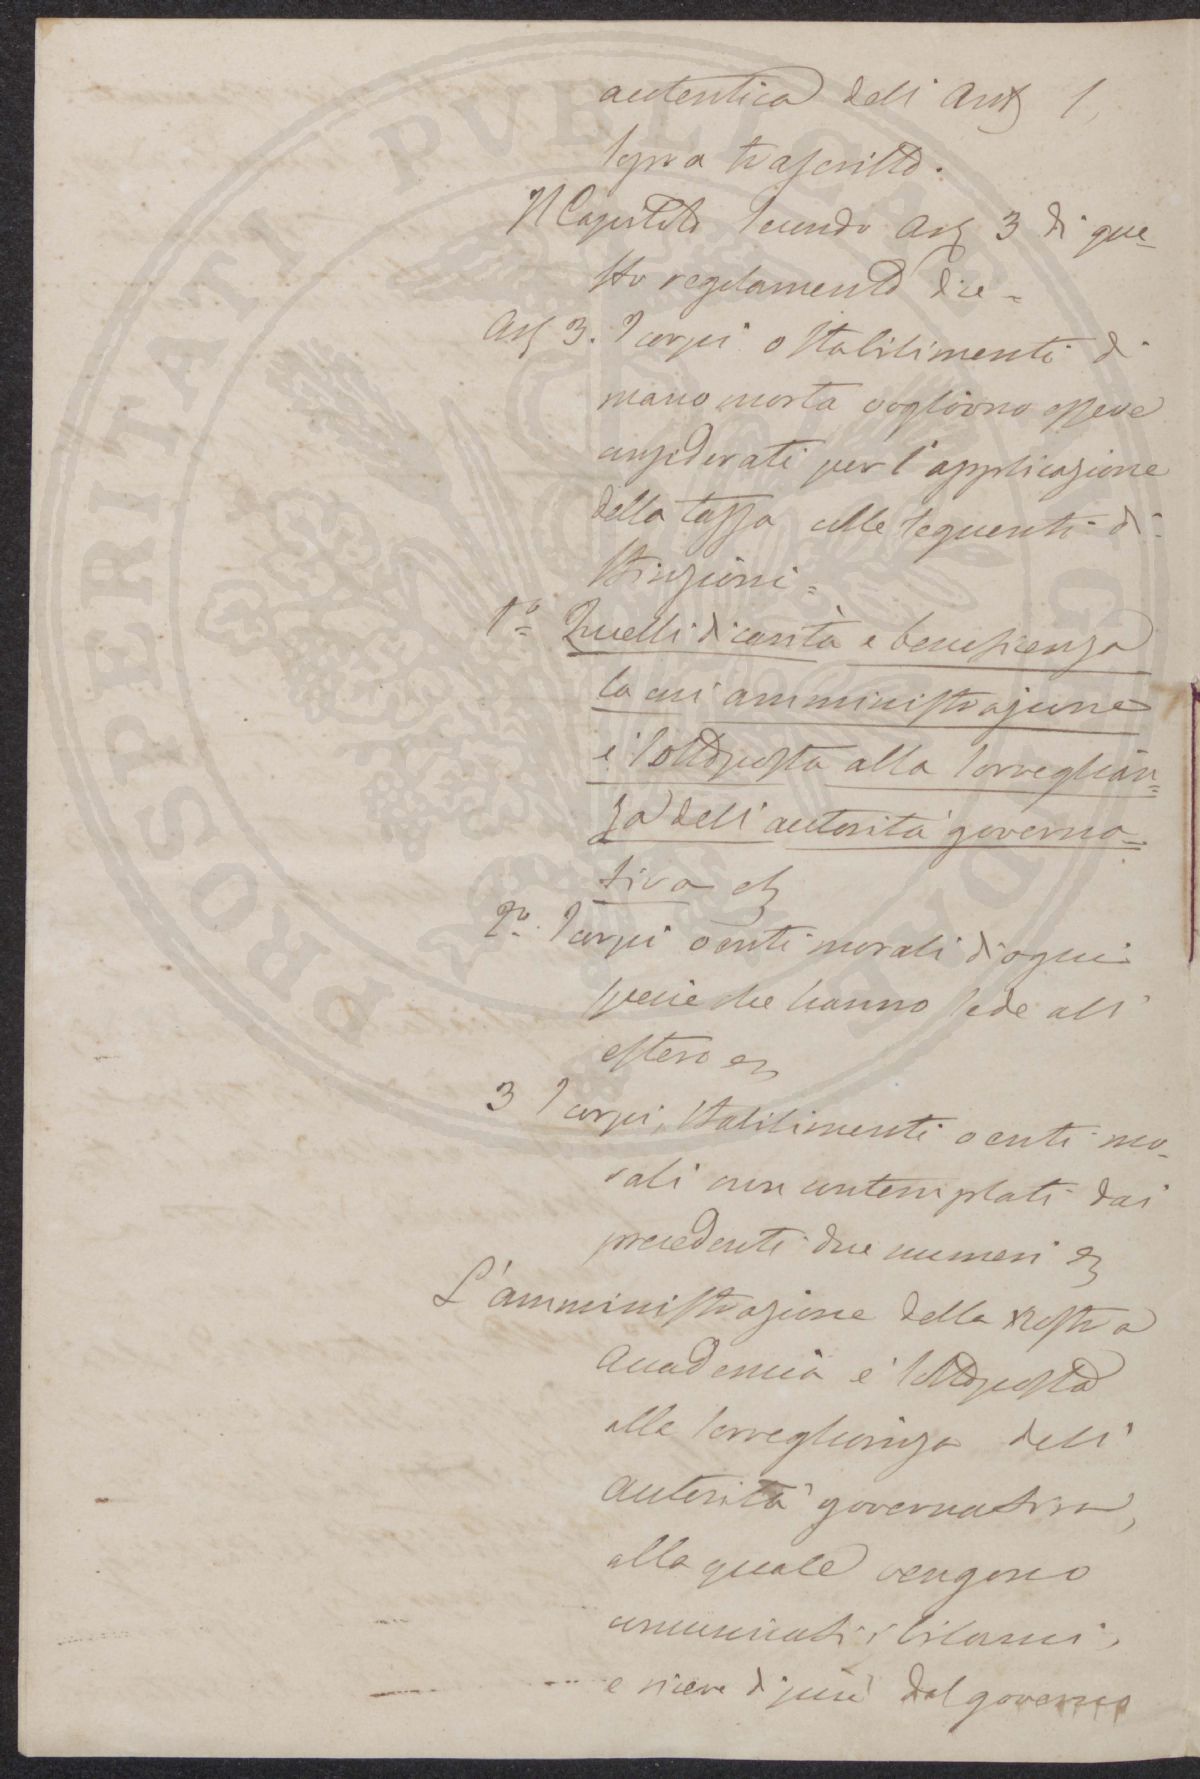 autentica dell' Art 1,
sopra trascritto.
Il Capitolo secondo Art 3 di que=
sto regolamento dice =
Art 3. I corpi o stabilimenti di
mano morta vogliono essere
considerati per l'applicazione
della tassa colle seguenti di
stinzioni =
1º= Quelli di carità e beneficenza
la cui amministrazione
è sottoposta alla sorveglian=
za dell' autorità governa=
tiva
2º. I corpi o enti morali di ogni
specie che hanno sede all'
estero
3 I corpi, stabilimenti o enti mo=
rali non contemplati dai
precedenti due numeri
L'amministrazione della nostra
Accademia è sottoposta
alla sorveglianza dell'
autorità governativa,
alla quale vengono
comunicati i bilanci,
e riceve di più dal governo
PROSPERITATI PUBLICAE AUGENDAE